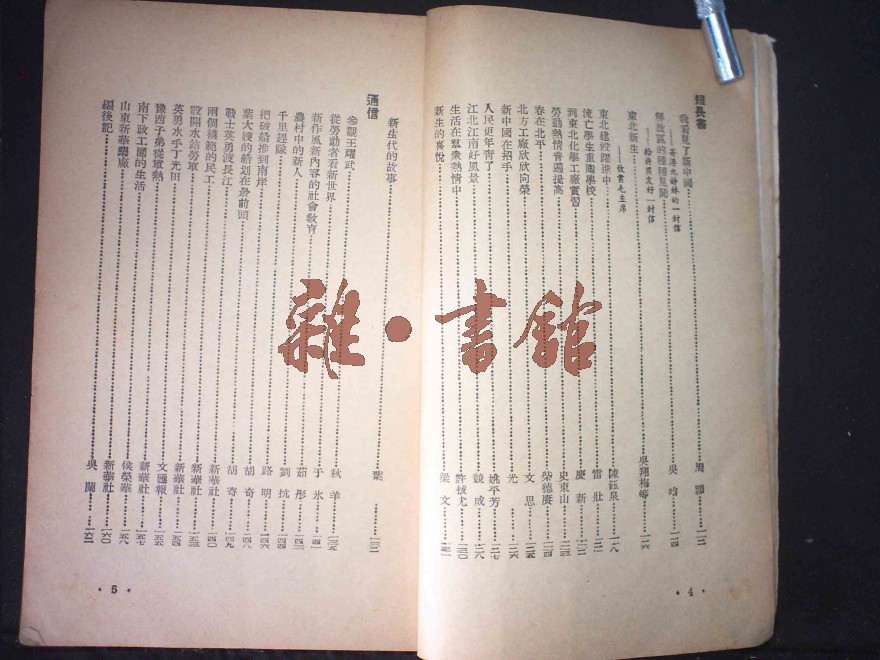 短長書
我看見了新中國……周 …一一二
——香港九姊妹的一封信
解放區的種種見聞……吳 晗…一一四
——給與黨友好一封信
東北新生……吳翔梅……一一六
——致書毛主席
東北建設躍進中……陳鈺泉…一一八
流亡學生重園學校……雷 壯…一二一
到東北化學工廠實習……慶 新…一二二
勞動熱情普遍提高……史東山…一二三
春在北平……榮德慶…一二四
北方工廠欣欣向榮……文 思…一二五
新中國在招手……光…一二六
人民更年青了……姚平芳…一二七
江北江南好風景……競 成…一二八
生活在羣衆熱情中……許拔尤…一三〇
新生的喜悅……梁 文…一三一
· 4 ·
新生代的故事……葉 …一三二
通信
參觀王耀武……秋 羊…一三五
從勞動者看新世界
新作風新內容的社會教育……于 氷…一四一
農村中的新人……茹 彤…一四三
千里趕隊……劉 抗…一四四
把破船推到南岸……路 明…一四六
葉大嫂的船划在最前頭……胡 奇…一四八
戰士英勇渡長江……胡 奇…一四九
兩個模範的民工……新華社…一四〇
設開水站勞軍……新華社…一五三
英勇水手丁光田……新華社…一五四
豫西子弟從軍熱……文匯報…一五五
南下政工團的生活……新華社…一五七
山東新華鐵廠……侯榮華…一五八
編後記……新華社…一六〇
吳 蘭…一六二
· 5 ·
雜·書館